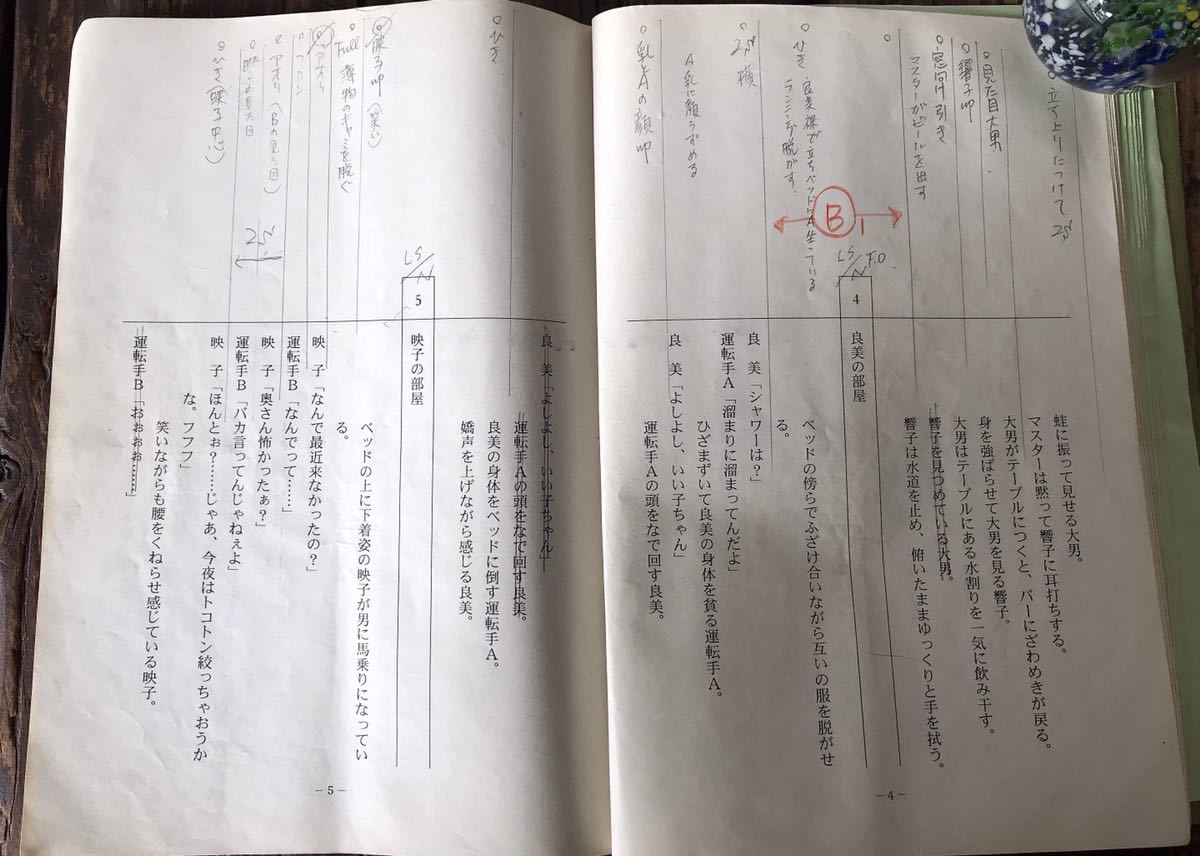 立て よりにつけて 2S
見た目大男
響子叩
窓向け引き
マスターがビールを出す
B
F.O
LS/N
ひき 良美裸で立ちベッドにA坐っている
ランニングを脱がす.
2S 横
A 乳に顔うずめる
乳とAの顔叩
蛙に振って見せる大男。
マスターは黙って響子に耳打ちする。
大男がテーブルにつくと、バーにざわめきが戻る。
身を強ばらせて大男を見る響子。
大男はテーブルにある水割りを一気に飲み干す。
響子を見つめている大男。
響子は水道を止め、俯いたままゆっくりと手を拭う。
4 良美の部屋
ベッドの傍らでふざけ合いながら互いの服を脱がせ
る。
良 美「シャワーは?」
運転手A「溜まりに溜まってんだよ」
ひざまずいて良美の身体を貪る運転手A。
良 美「よしよし、いい子ちゃん」
運転手Aの頭をなで回す良美。
―4―
ひき
LS/N
映子叩(笑い)
Full 薄物のキャミを脱ぐ
アオリ
アオリ(Bの見た目)
2S
ひき(映子中心)
良 美「よしよし、いい子ちゃん」
運転手Aの頭をなで回す良美。
良美の身体をベッドに倒す運転手A。
嬌声を上げながら感じる良美。
5 映子の部屋
ベッドの上に下着姿の映子が男に馬乗りになってい
る。
映 子「なんで最近来なかったの?」
運転手B「なんでって……」
映 子「奥さん怖かったぁ?」
運転手B「バカ言ってんじゃねぇよ」
映 子「ほんとぉ?……じゃあ、今夜はトコトン絞っちゃおうか
な。フフフ」
笑いながらも腰をくねらせ感じている映子。
運転手B「おぉぉぉ……」
―5―